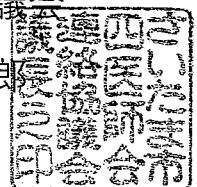 さいたま市
四医師会
連絡協議会
議長之印
郎